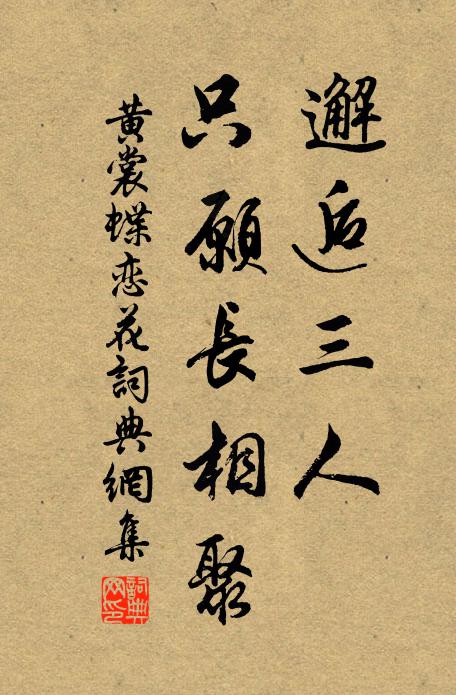 邂逅三人
只願長相聚
黄裳蝶恋花詞典網集
詞典網印